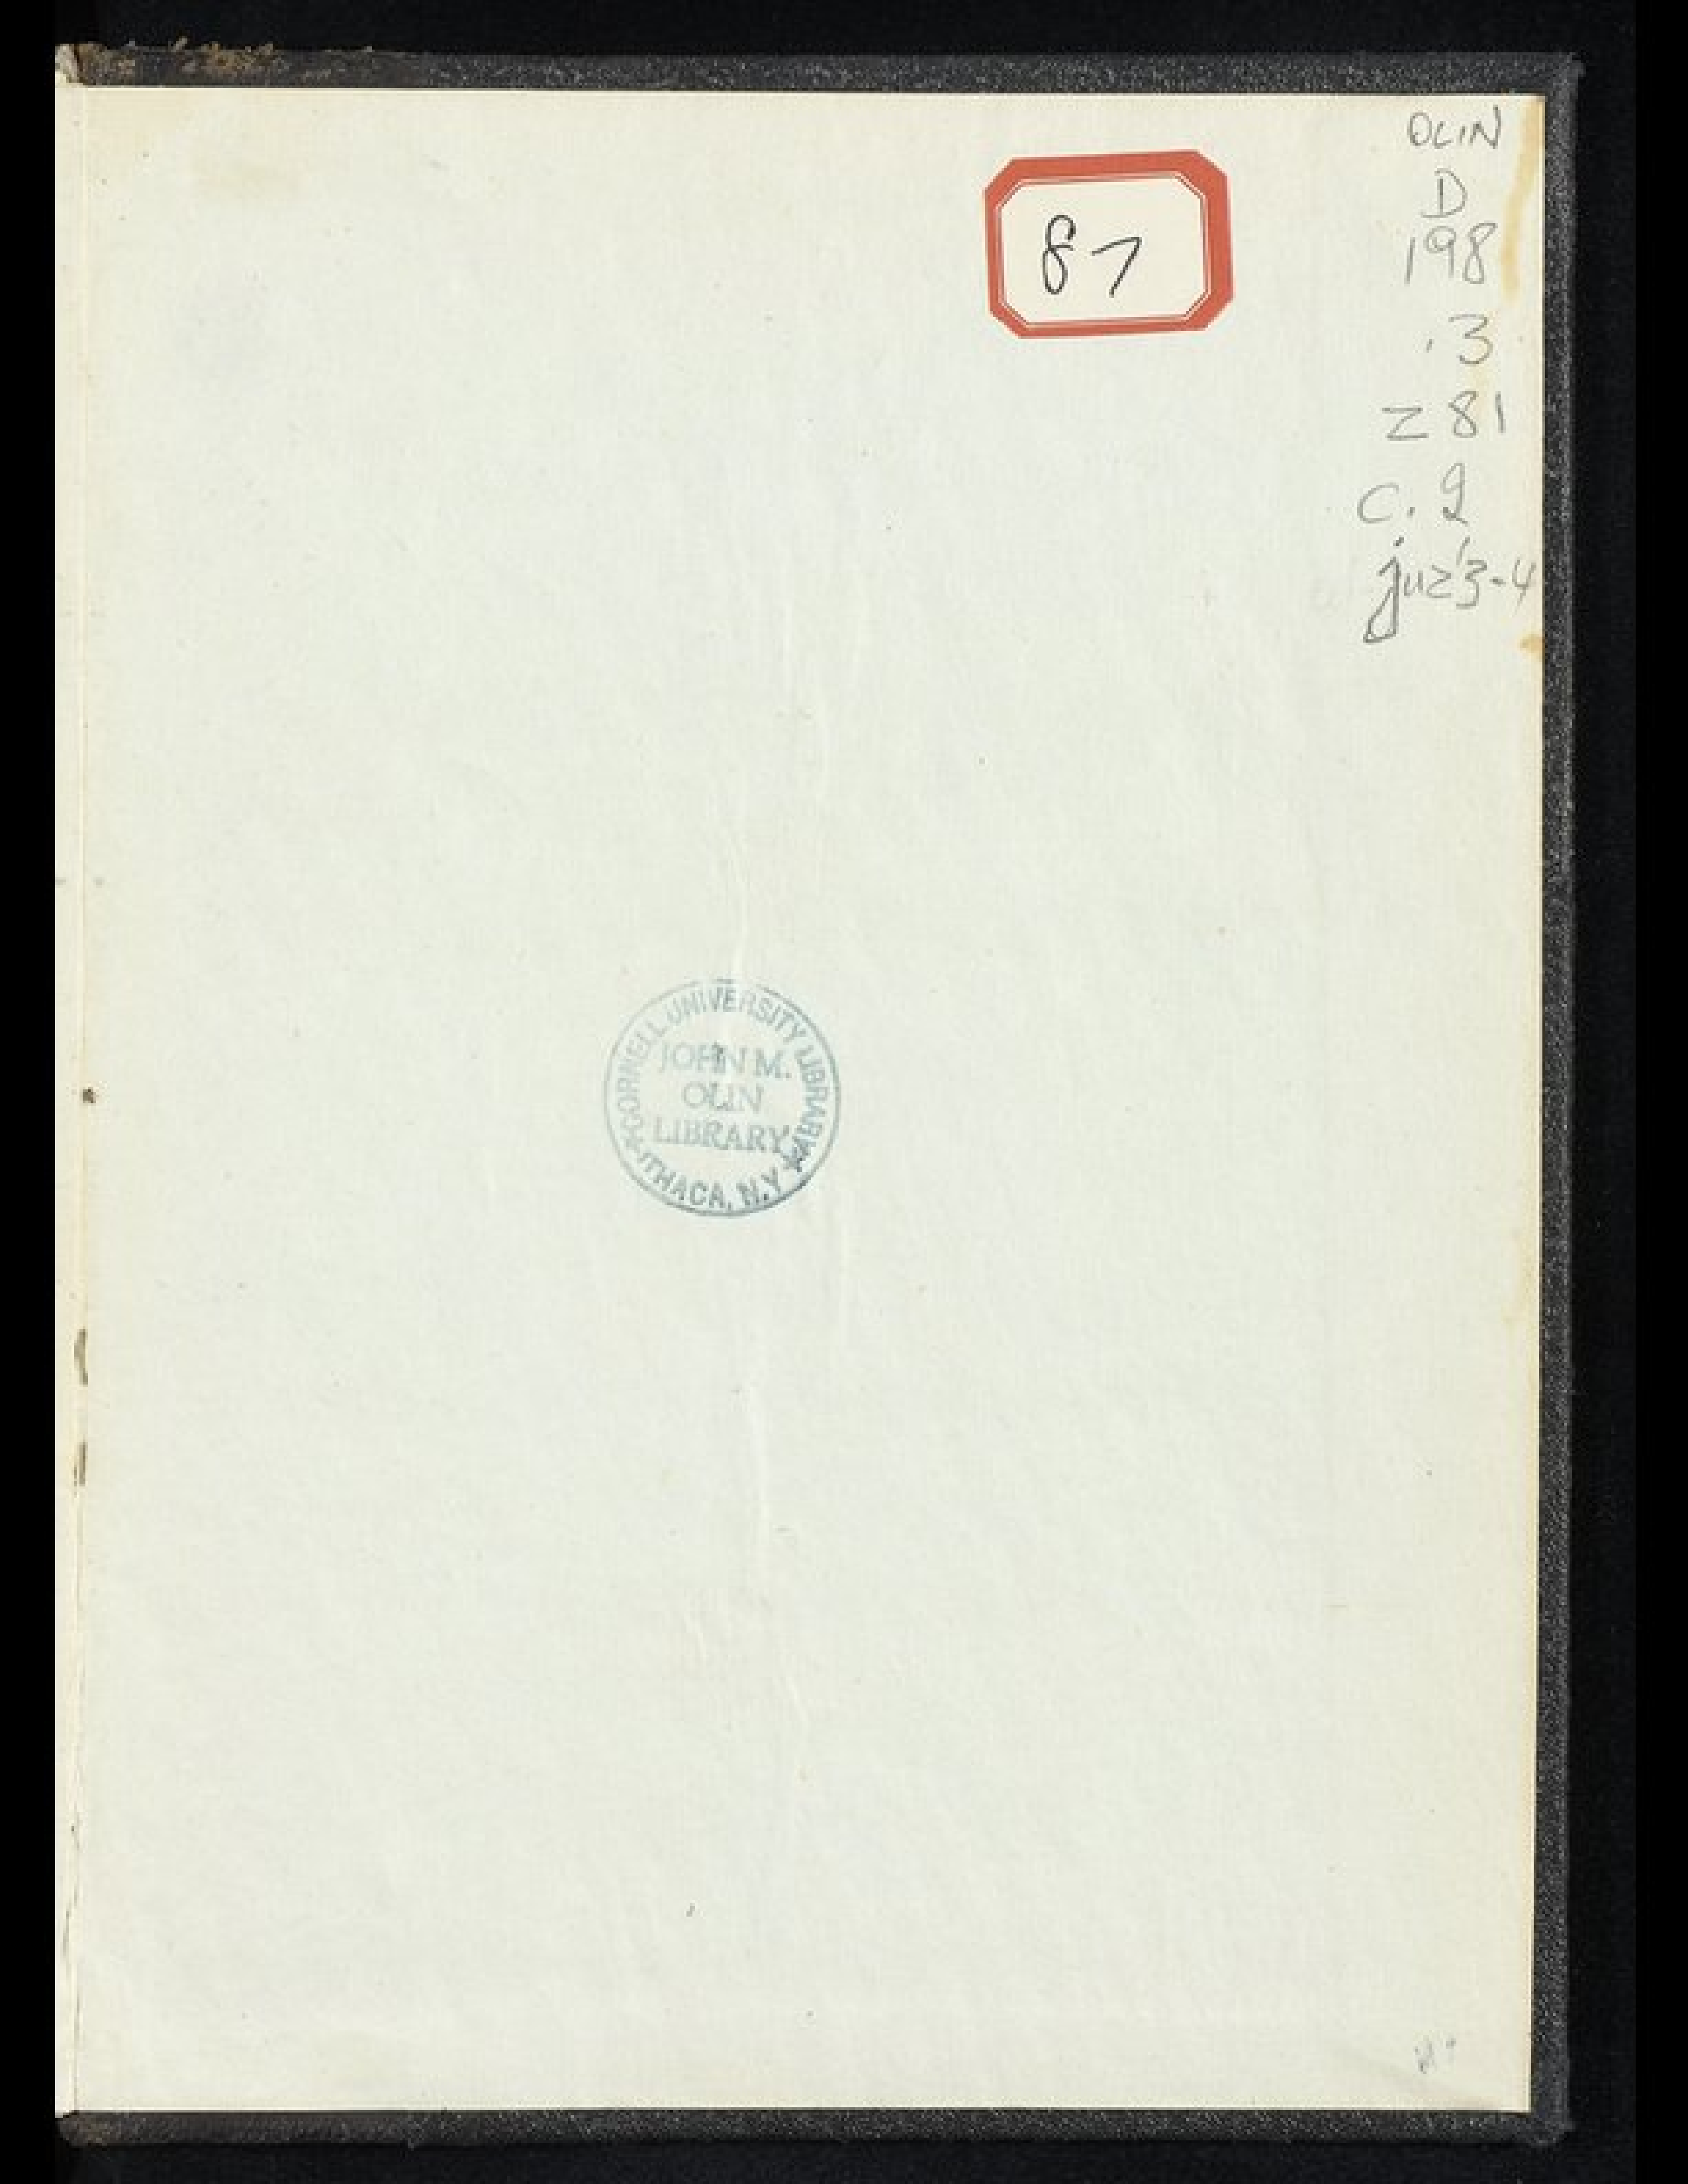 OLIN
D
198
.3
Z 81
c. 2
juz'3-4
87
CORNELL UNIVERSITY LIBRARY
JOHN M.
OLIN
LIBRARY
ITHACA, N.Y